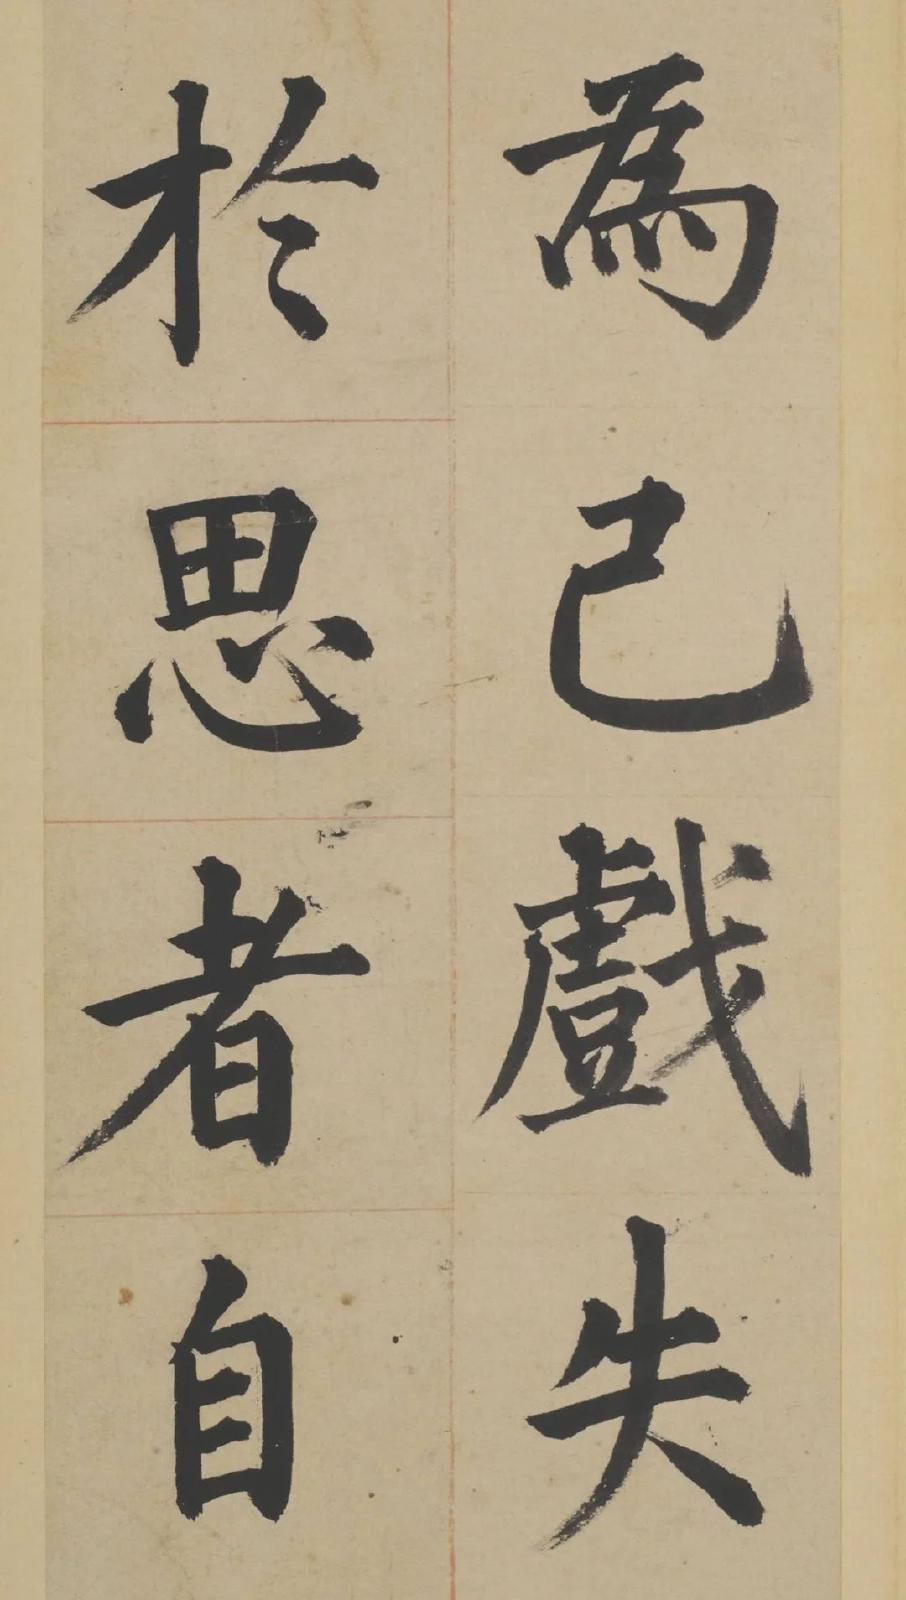 為己戲失
於思者自